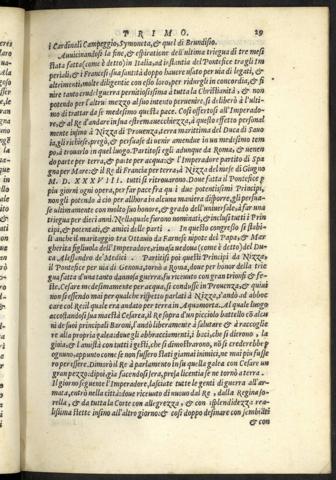 PRIMO. 29
i Cardinali Campeggio, Symoneta, & quel di Brundisio.
Auuicinandosi la fine, & espiratione dell'ultima triegua di tre mesi
stata fatta (come è detto) in Italia, ad istantia del Pontefice tra gli Im
periali, & i Francesi: sua santità doppo hauere usato per uia di legati, &
altrimenti, molte diligentie con esso loro, per ridurgle in concordia, & fi
nire tanto cruda guerra pernitiosissima a tutta la Christianità, & non
potendo per l'altrui mezzo al suo intento peruenire, si deliberò a l'ulti-
mo di trattar da se medesimo questa pace. Così offertosi all'Imperado-
re, & al Re d'andare in sua estrema uecchiezza, à questo effetto personal
mente insino à Nizza di Prouenza, terra marittima del Duca di Sauo
ia, gli richiese, pregò, & persuase di uenire amendue in un medesimo tem
po, à trouarlo in quel luogo. Partitosi egli adunque da Roma, & uenen
do parte per terra, & parte per acqua: & l'Imperadore partito di Spa
gna per Mare: & il Re di Francia per terra, à Nizza del mese di Giugno
M. D. XXXVIII. tutti si ritrouarono. Doue fatta il Pontefice p
piu giorni ogni opera, per far pace fra qui i due potentissimi Principi,
non gli potendo à ciò per allhora in alcuna maniera disporre, gli persua
se ultimamente con molto suo honore, & grado dell'uniuersale, à far una
triegua per dieci anni. Nella quale furono nominati, & inclusi tutti i Prin
cipi, & potentati, & amici delle parti. In questo congresso si stabi-
lì anche il mariaggio tra Ottauio da Farnese nipote del Papa, & Mar
gherita figliuola dell'Imperadore, rimasa uedoua (come è detto) del Du
ca Alessandro de Medici. Partitisi poi questi Principi da Nizza,
il Pontefice per uia di Genoua, tornò a Roma, doue per honor della trie
gua fatta d'una tanto dannosa guerra, fu riceuuto con gran trionfi & fe-
ste, Cesare medesimamente per acqua, si condusse in Prouenza, & quiui
non si essendo mai per qualche rispetto parlati à Nizza, s'andò ad abboc
care col Re, il quale era andato per terra in Aquamorta. Al quale luogo
accostandosi sua maestà Cesarea, il Re sopra d'un picciolo battello cõ alcu
ni de suoi principali Baroni, l'andò liberamente à salutare & à raccoglie
re alla propria galea: doue gli abbracciamenti, i baci, che si dierono la
gioia, & l'amistà con tutti i gesti, che si dimostrarono, nõ si crederebbe
ognuno, appunto come se non fussero stati giamai inimici, ne mai piu fusse
ro per essere. Dimorò il Re à parlamento in su quella galea con Cesare un
gran pezzo: dipoi, già facendosi sera, presa licentia se ne tornò a terra.
Il giorno seguente l'Imperadore, lasciate tutte le genti di guerra all'ar-
mata, entrò nella città: doue riceuuto di nuouo dal Re, dalla Regina so-
rella, & da tutta la Corte con allegrezza, & con splendidezza rea-
lissima stette insino all'altro giorno: & così doppo desinare con sembiãti
& con